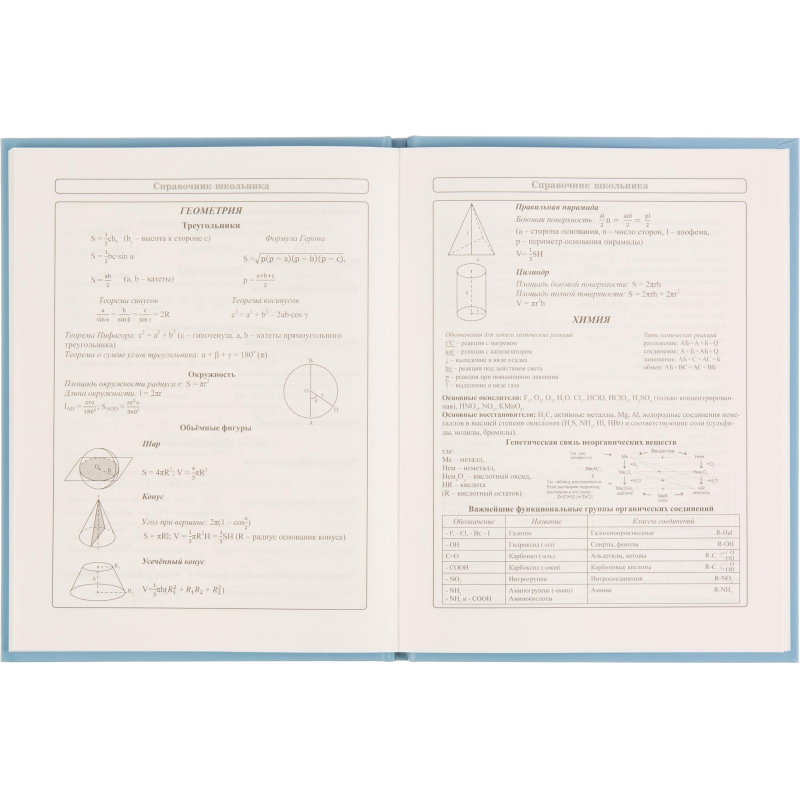 Справочник школьника
ГЕОМЕТРИЯ
Треугольники
S = 1/2 ch, (h – высота к стороне c)
Формула Герона
S = 1/2 bc·sin α
S = √p(p − a)(p − b)(p − c),
S = ab/2 (a, b – катеты)
p = a+b+c/2
Теорема синусов
Теорема косинусов
a/sin α = b/sin β = c/sin γ = 2R
c² = a² + b² – 2ab·cos γ
Теорема Пифагора: c² = a² + b² (c – гипотенуза, a, b – катеты прямоугольного
треугольника)
Теорема о сумме углов треугольника: α + β + γ = 180° (π)
Окружность
Площадь окружности радиуса r: S = πr²
Длина окружности: l = 2πr
Объёмные фигуры
Шар
S = 4πR²; V = 4/3 πR³
Конус
Угол при вершине: 2π(1 – cos α/2)
S = πRl; V = 1/3 πR²H = 1/3 SH (R – радиус основания конуса)
Усечённый конус
V = 1/3 πh(R₁² + R₁R₂ + R₂²)
Справочник школьника
Правильная пирамида
Боковая поверхность: al/2 n = anl/2 = pl/2
(a – сторона основания, n – число сторон, l – апофема,
p – периметр основания пирамиды)
V = 1/3 SH
Цилиндр
Площадь боковой поверхности: S = 2πrh
Площадь полной поверхности: S = 2πrh + 2πr²
V = πr²h
ХИМИЯ
Обозначения для записи химических реакций
Типы химических реакций
t°C – реакция с нагревом
разложение: АБ = А + Б
кат – реакция с катализатором
соединение: А + Б = АБ + Q
↓ – выпадение в виде осадка
замещение: АБ + С = АС + Б
hν – реакция под действием света
обмен: АБ + ВС = АС + ВБ
p – реакция при повышенном давлении
↑ – выделение в виде газа
Основные окислители: F₂, O₂, O₃, H₂O, Cl₂, HClO, HClO₃, H₂SO₄ (только концентрирован-
ная), HNO₃, NO₂, KMnO₄.
Основные восстановители: H₂, C, активные металлы, Mg, Al, водородные соединения неме-
таллов в высшей степени окисления (H₂S, NH₃, HI, HBr) и соответствующие соли (сульфи-
ды, иодиды, бромиды).
Генетическая связь неорганических веществ
где:
Ме – металл,
Нем – неметалл,
Нем₂Oₓ – кислотный оксид,
HR – кислота
(R – кислотный остаток)
Вещества
Ме
Нем
Важнейшие функциональные группы органических соединений
Обозначение Название Классы соединений
- F, - Cl, - Br, - I Галоген Галогенопроизводные R-Hal
- OH Гидроксил (-ол) Спирты, фенолы R-OH
C=O Карбонил (-аль) Альдегиды, кетоны R-C O (H)
- COOH Карбоксил (-овая) Карбоновые кислоты R-C O OH
- NO₂ Нитрогруппа Нитросоединения R-NO₂
- NH₂ Аминогруппы (-амин) Амины R-NH₂
- NH₂ и - COOH Аминокислоты